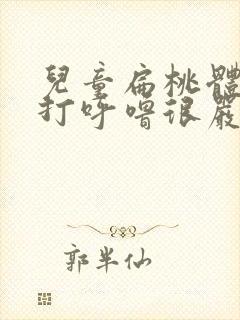 兒童扁桃體
打呼嚕很嚴
郭半仙